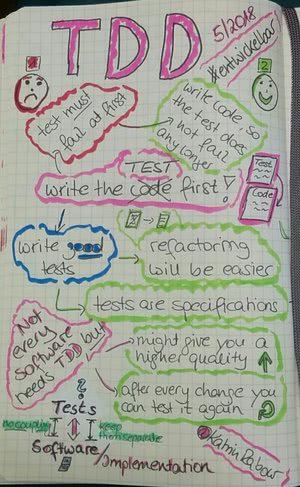 TDD
5/2018
#entwickelbar
1
2
test must
fail at first
write code, so
the test does
not fail
any longer
TEST
write the code first!
Test
Code
write good
tests
refactoring
will be easier
tests are specifications
Not
every
software
needs TDD but
might give you a
higher quality
after every change you
can test it again
?
Tests
no coupling
keep
them separate
Software/Implementation
Katrin Rabow